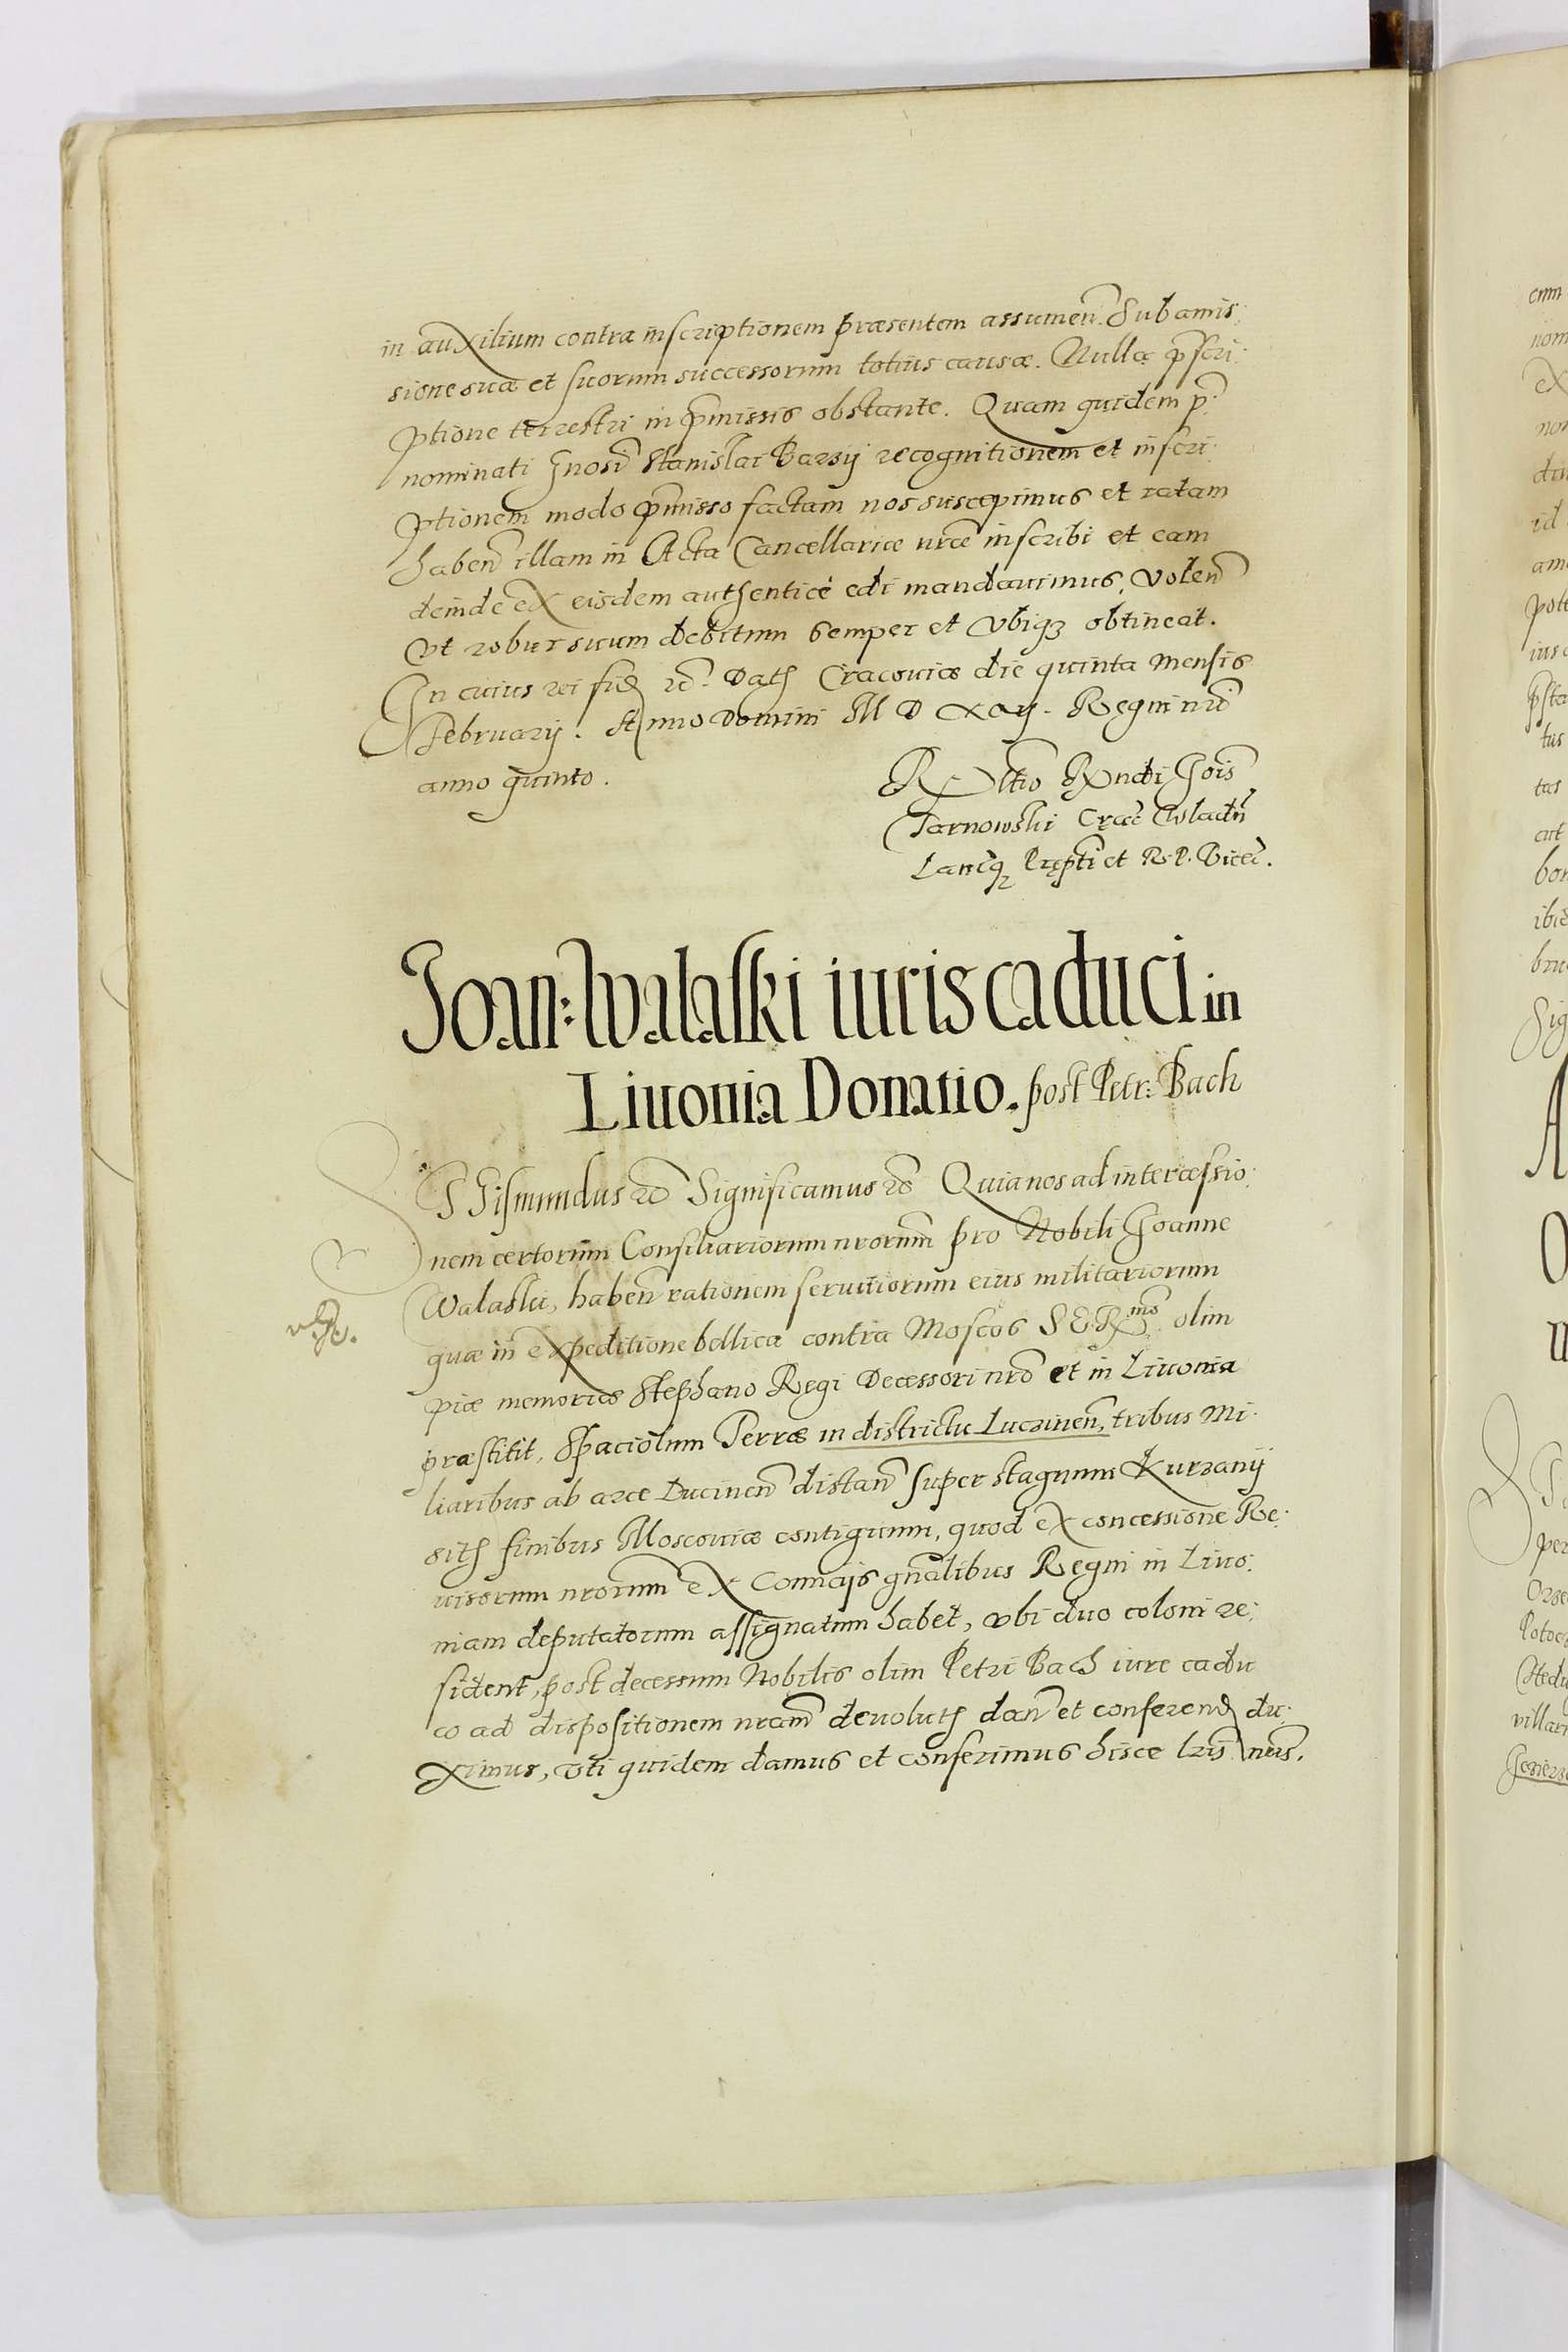 in auxilium contra inscriptionem præsentem assumen. Sub amis:
sione suæ et suorum successorum totius causæ. Nullæ pscri:
ptione terrestri in pmissis obstante. Quam quidem p:
nominati Gnosi Stanislai Barsÿ recognitionem et inscri:
ptionem modo pmisso factam nos suscepimus et ratam
haben illam in Acta Cancellariæ nræ inscribi et eam
deinde ex eisdem authenticè edi mandauimus, volen
vt robur suum debitum semper et vbiqz obtineat.
In cuius rei fid etc. Dat Cracouiæ die quinta Mensis
February. Anno Domini M D XCij. Regni nri
anno quinto.
Rltio Rndi Jois
Tarnowski Crac Wladn
Lanciq Præpti et R. P. Vicec.
Joan: Walaski iuris caduci in
Liuonia Donatio. post Petr: Bach
SIgismundus etc Significamus etc Quia nos ad intercessio:
nem certorum Consiliariorum nrorum pro Nobili Joanne
Walaski, haben rationem seruitiorum eius militariorum
quæ in expeditione bellica contra Moscos SERmo olim
piæ memoriæ Stephano Regi Decessori nro et in Liuonia
præstitit, Spaciolum Terræ in districtu Lucinen, tribus Mi:
liaribus ab arce Lucinen distan super stagnum Kurzany
sit finibus Moscouiæ contiguum, quod ex concessione Re:
uisorum nrorum ex Comicijs gnalibus Regni in Liuo:
niam deputatorum assignatum habet, vbi duo coloni re:
sident, post decessum Nobilis olim Petri Bach iure cadu
co ad dispositionem nram deuolut dan et conferend du:
ximus, vti quidem damus et conferimus hisce lris nris.